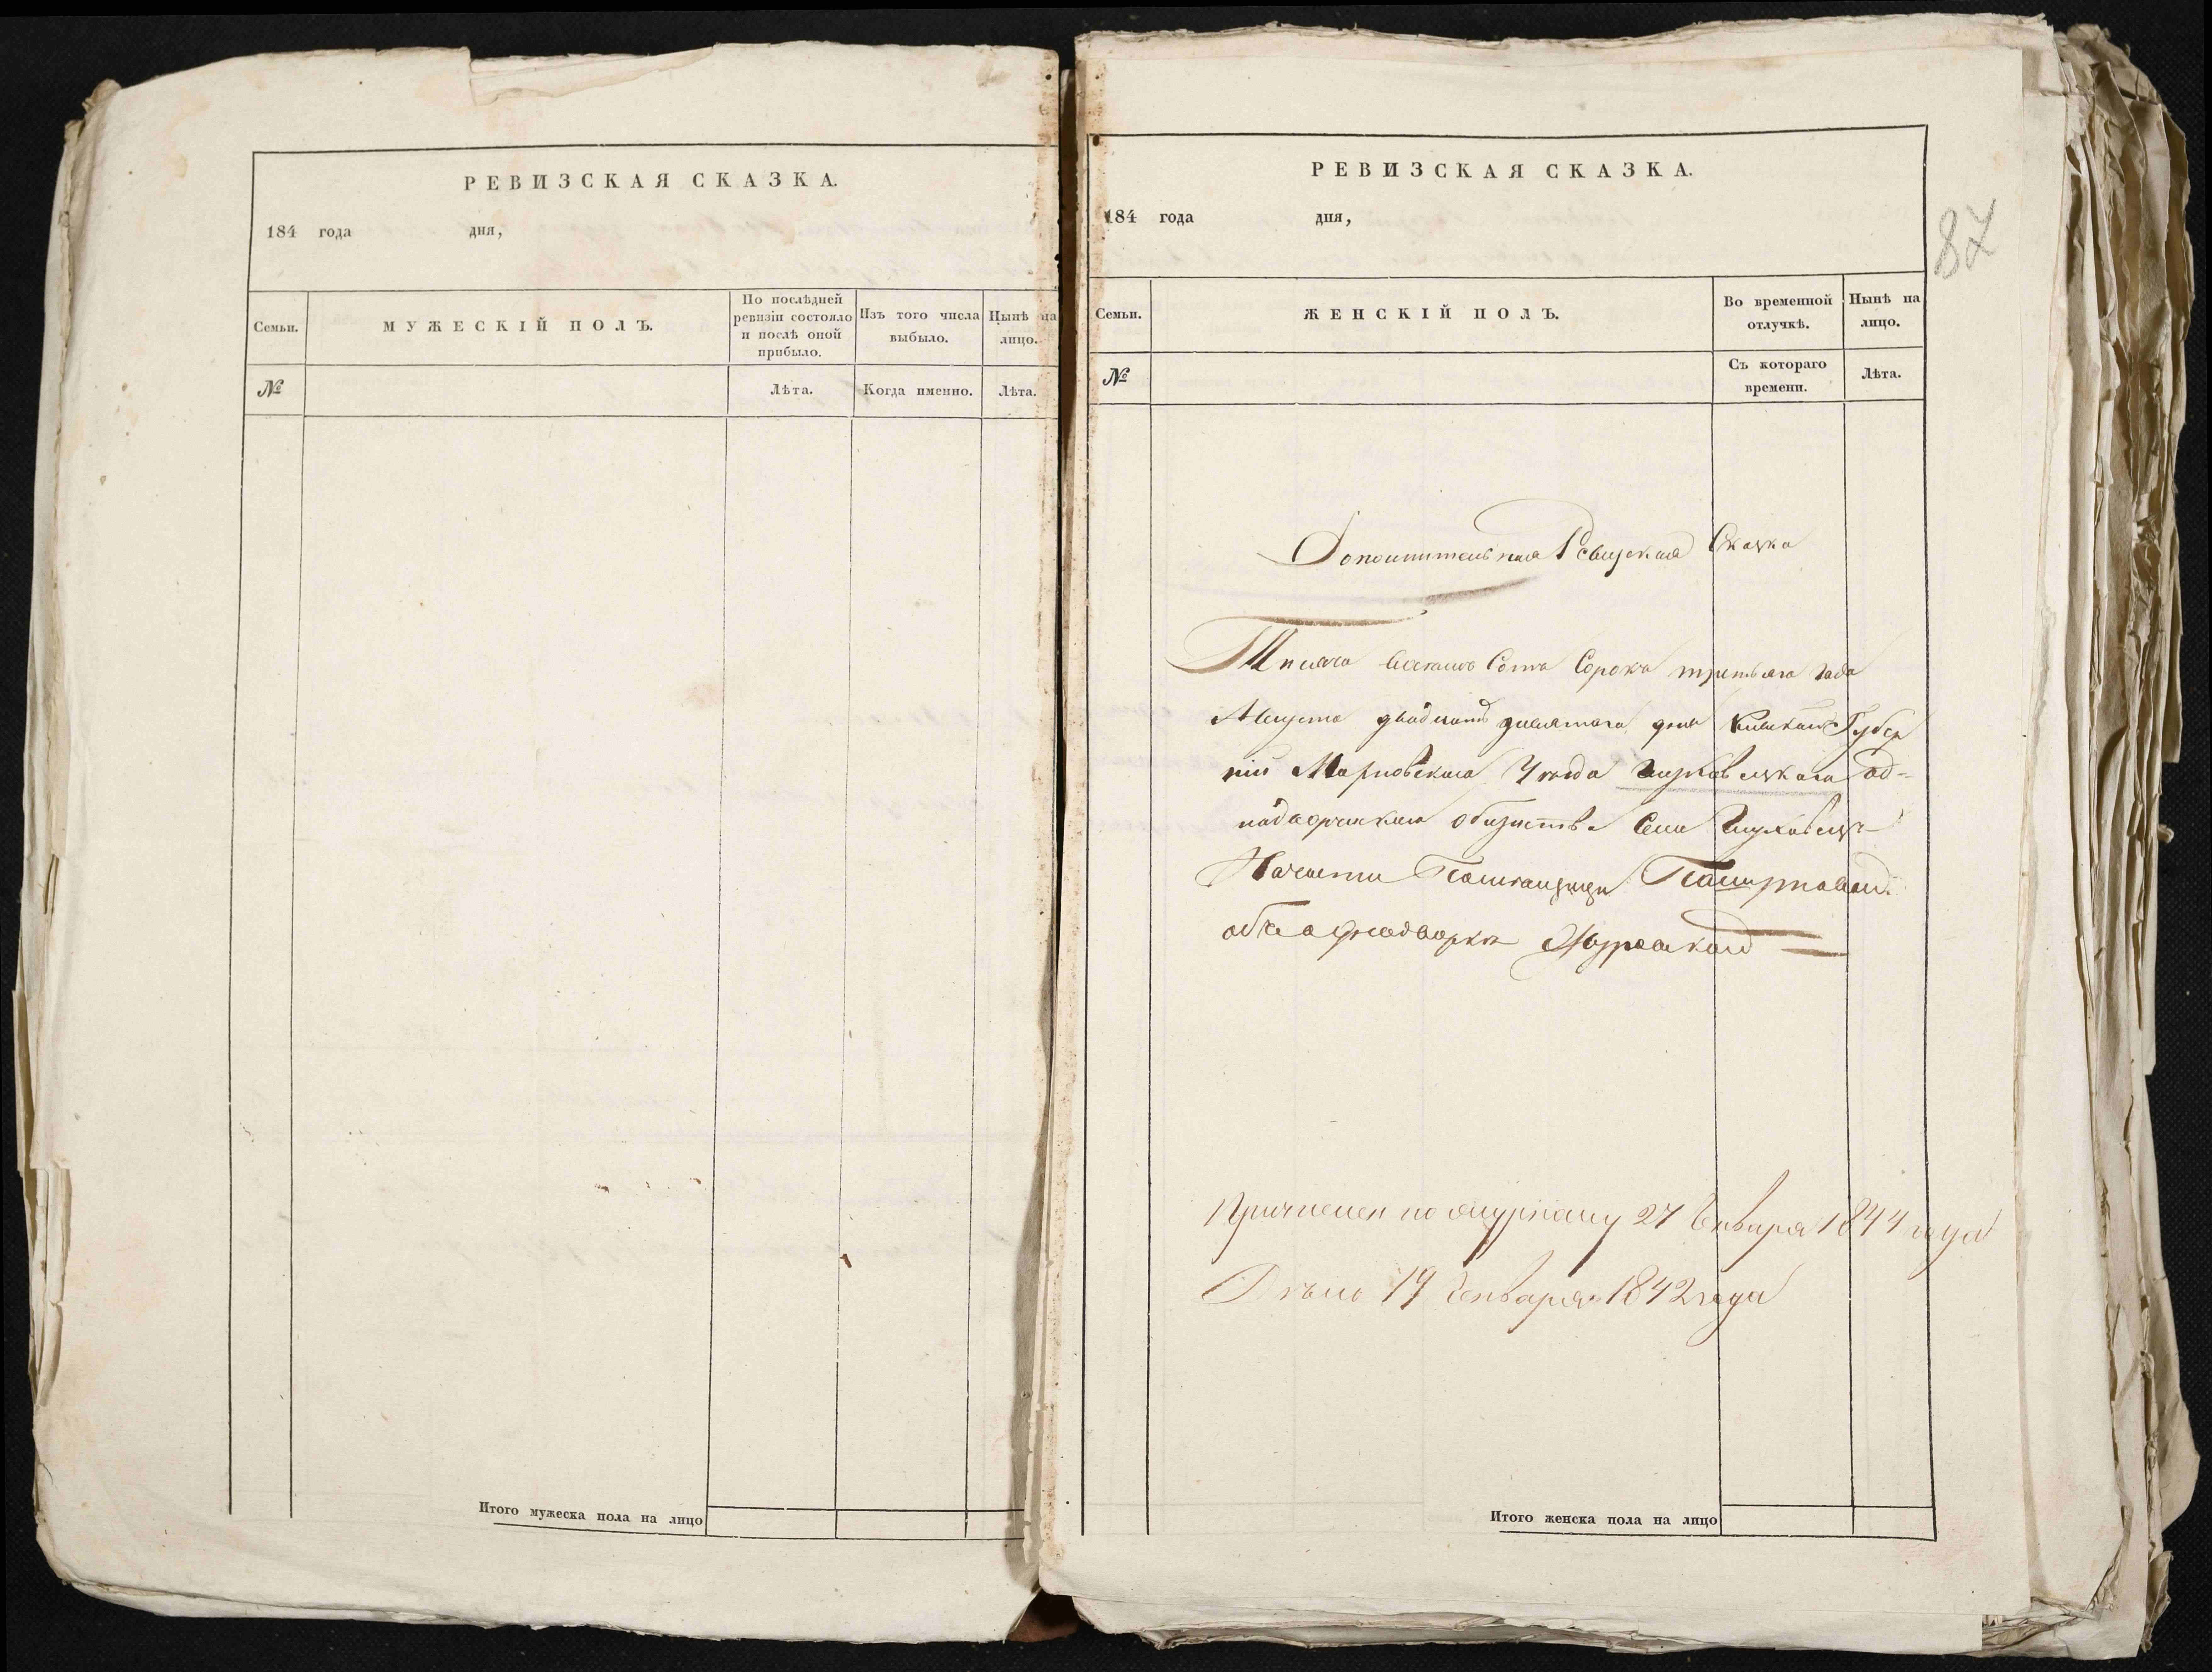 РЕВИЗСКАЯ СКАЗКА.
184 года дня,
Семьи.
МУЖЕСКІЙ ПОЛЪ.
По послѣдней
ревизіи состояло
и послѣ оной
прибыло.
Изъ того числа
выбыло.
Нынѣ на
лицо.
№
Лѣта.
Когда именно.
Лѣта.
Итого мужеска пола на лицо
РЕВИЗСКАЯ СКАЗКА.
184 года дня,
87
Семьи.
ЖЕНСКІЙ ПОЛЪ.
Во временной
отлучкѣ.
Нынѣ на
лицо.
№
Съ котораго
времени.
Лѣта.
Дополнительная Ревизская Сказка
Тысяча восемь Сотъ Сорокъ третьяго года
Августа двадцать девятаго дня Кіевской Губер
ніи Уезда од-
нодворческаго общества Села
Начести
обҍ однодворкҍ
Причислен по 27 Генваря 1844 года
Дҍло 19 Генваря 1842 года
Итого женска пола на лицо